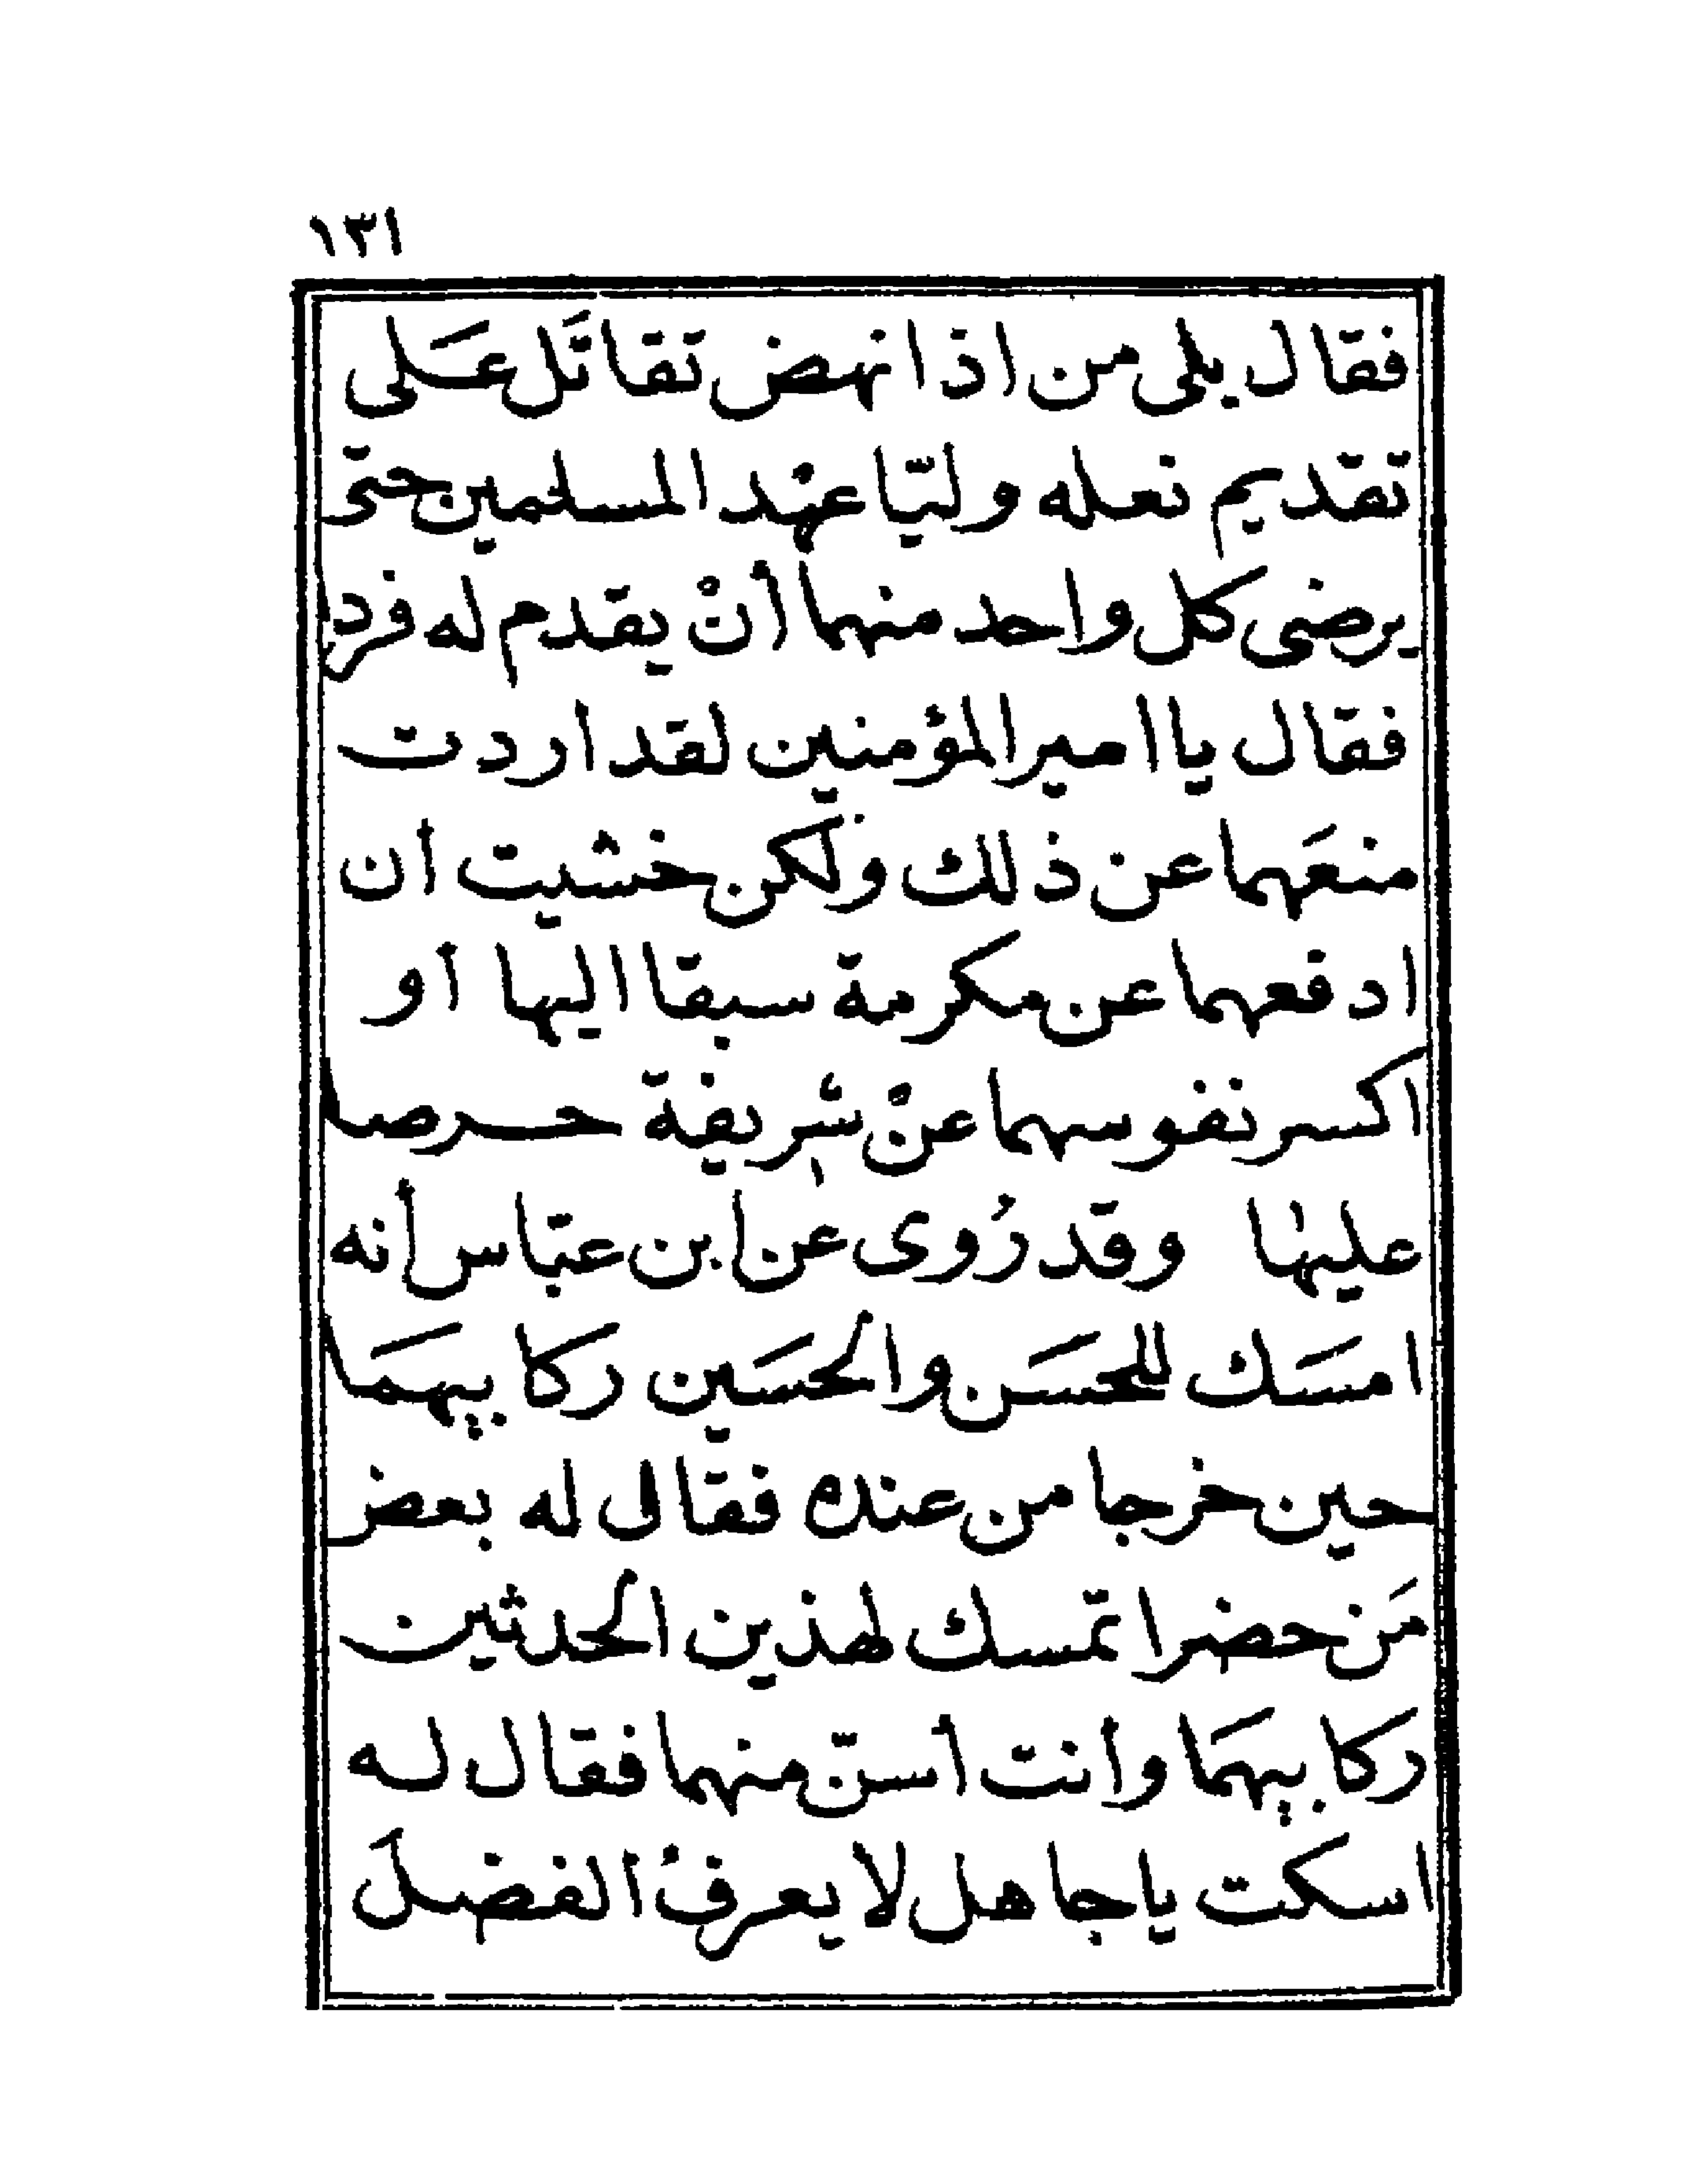 ١٣١
فقال بلى من اذا نهض تقاتَل عَلى
تقديم نعله وليّا عهد المسلمين حتى
يرضى كل واحد منهما أنْ يقدم له فرد
فقال يا امير المؤمنين لقد اردت
منعَهما عن ذلك ولكن خشيت أن
ادفعهما عن مكرمة سبقا اليها أو
اكسر نفوسهما عنْ شريفة حرصا
عليها وقد رُوى عن ابن عبّاس أنه
امسَك للحسَن والحسَين ركابيهمَا
حين خرجا من عنده فقال له بعض
مَن حضر اتمسك لهذين الحدثين
ركابيهمَا وأنت أسنّ منهما فقال له
اسكت يا جاهل لا يعرفُ الفضلَ